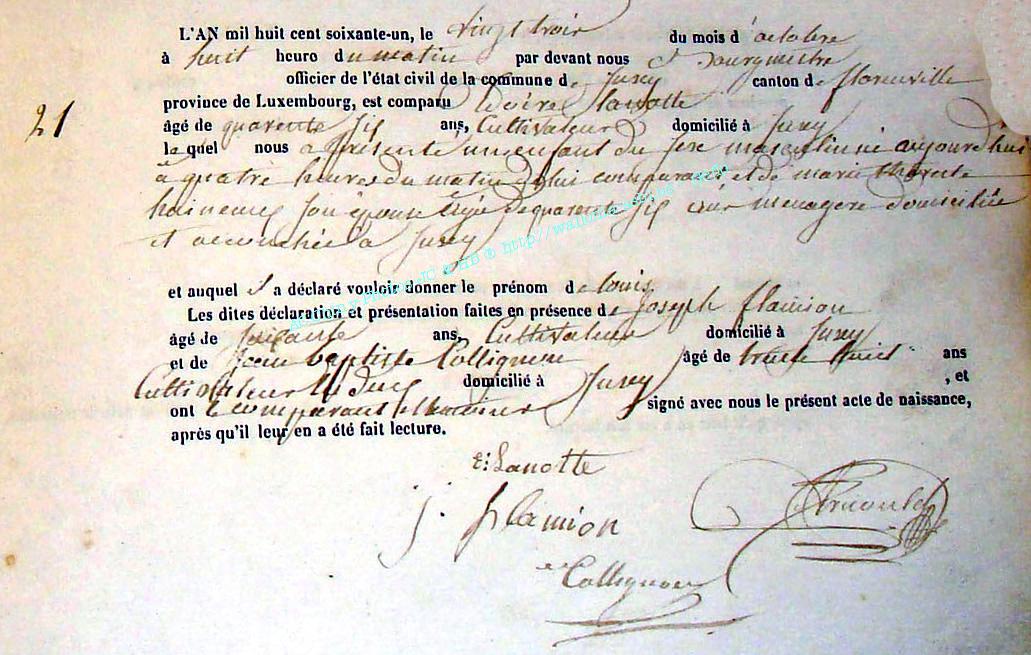 L'AN mil huit cent soixante-un, le vingt trois du mois d'octobre
à huit heure du matin par devant nous Bourgmestre
officier de l'état civil de la commune de Jusey canton de florenville
province de Luxembourg, est comparu Lanotte
21
âgé de quarente sis ans, Cultivateur domicilié à Jusey
le quel nous a présenté un enfant du sexe masculin né aujourd'hui
a quatre heures du matin de lui comparant et de marie thérese
son épouse agée de quarente sis ans menagere domiciliée
et accouchée a Jusey
et auquel il a déclaré vouloir donner le prénom de louis.
Les dites déclaration et présentation faites en présence de joseph flamion
âgé de soixante ans, Cultivateur domicilié à Jusey
et de jean baptiste Collignon âgé de trente huit ans
Cultivateur domicilié à Jusey , et
ont le comparant et temoins signé avec nous le présent acte de naissance,
après qu'il leur en a été fait lecture.
Lanotte
J. flamion
Collignon